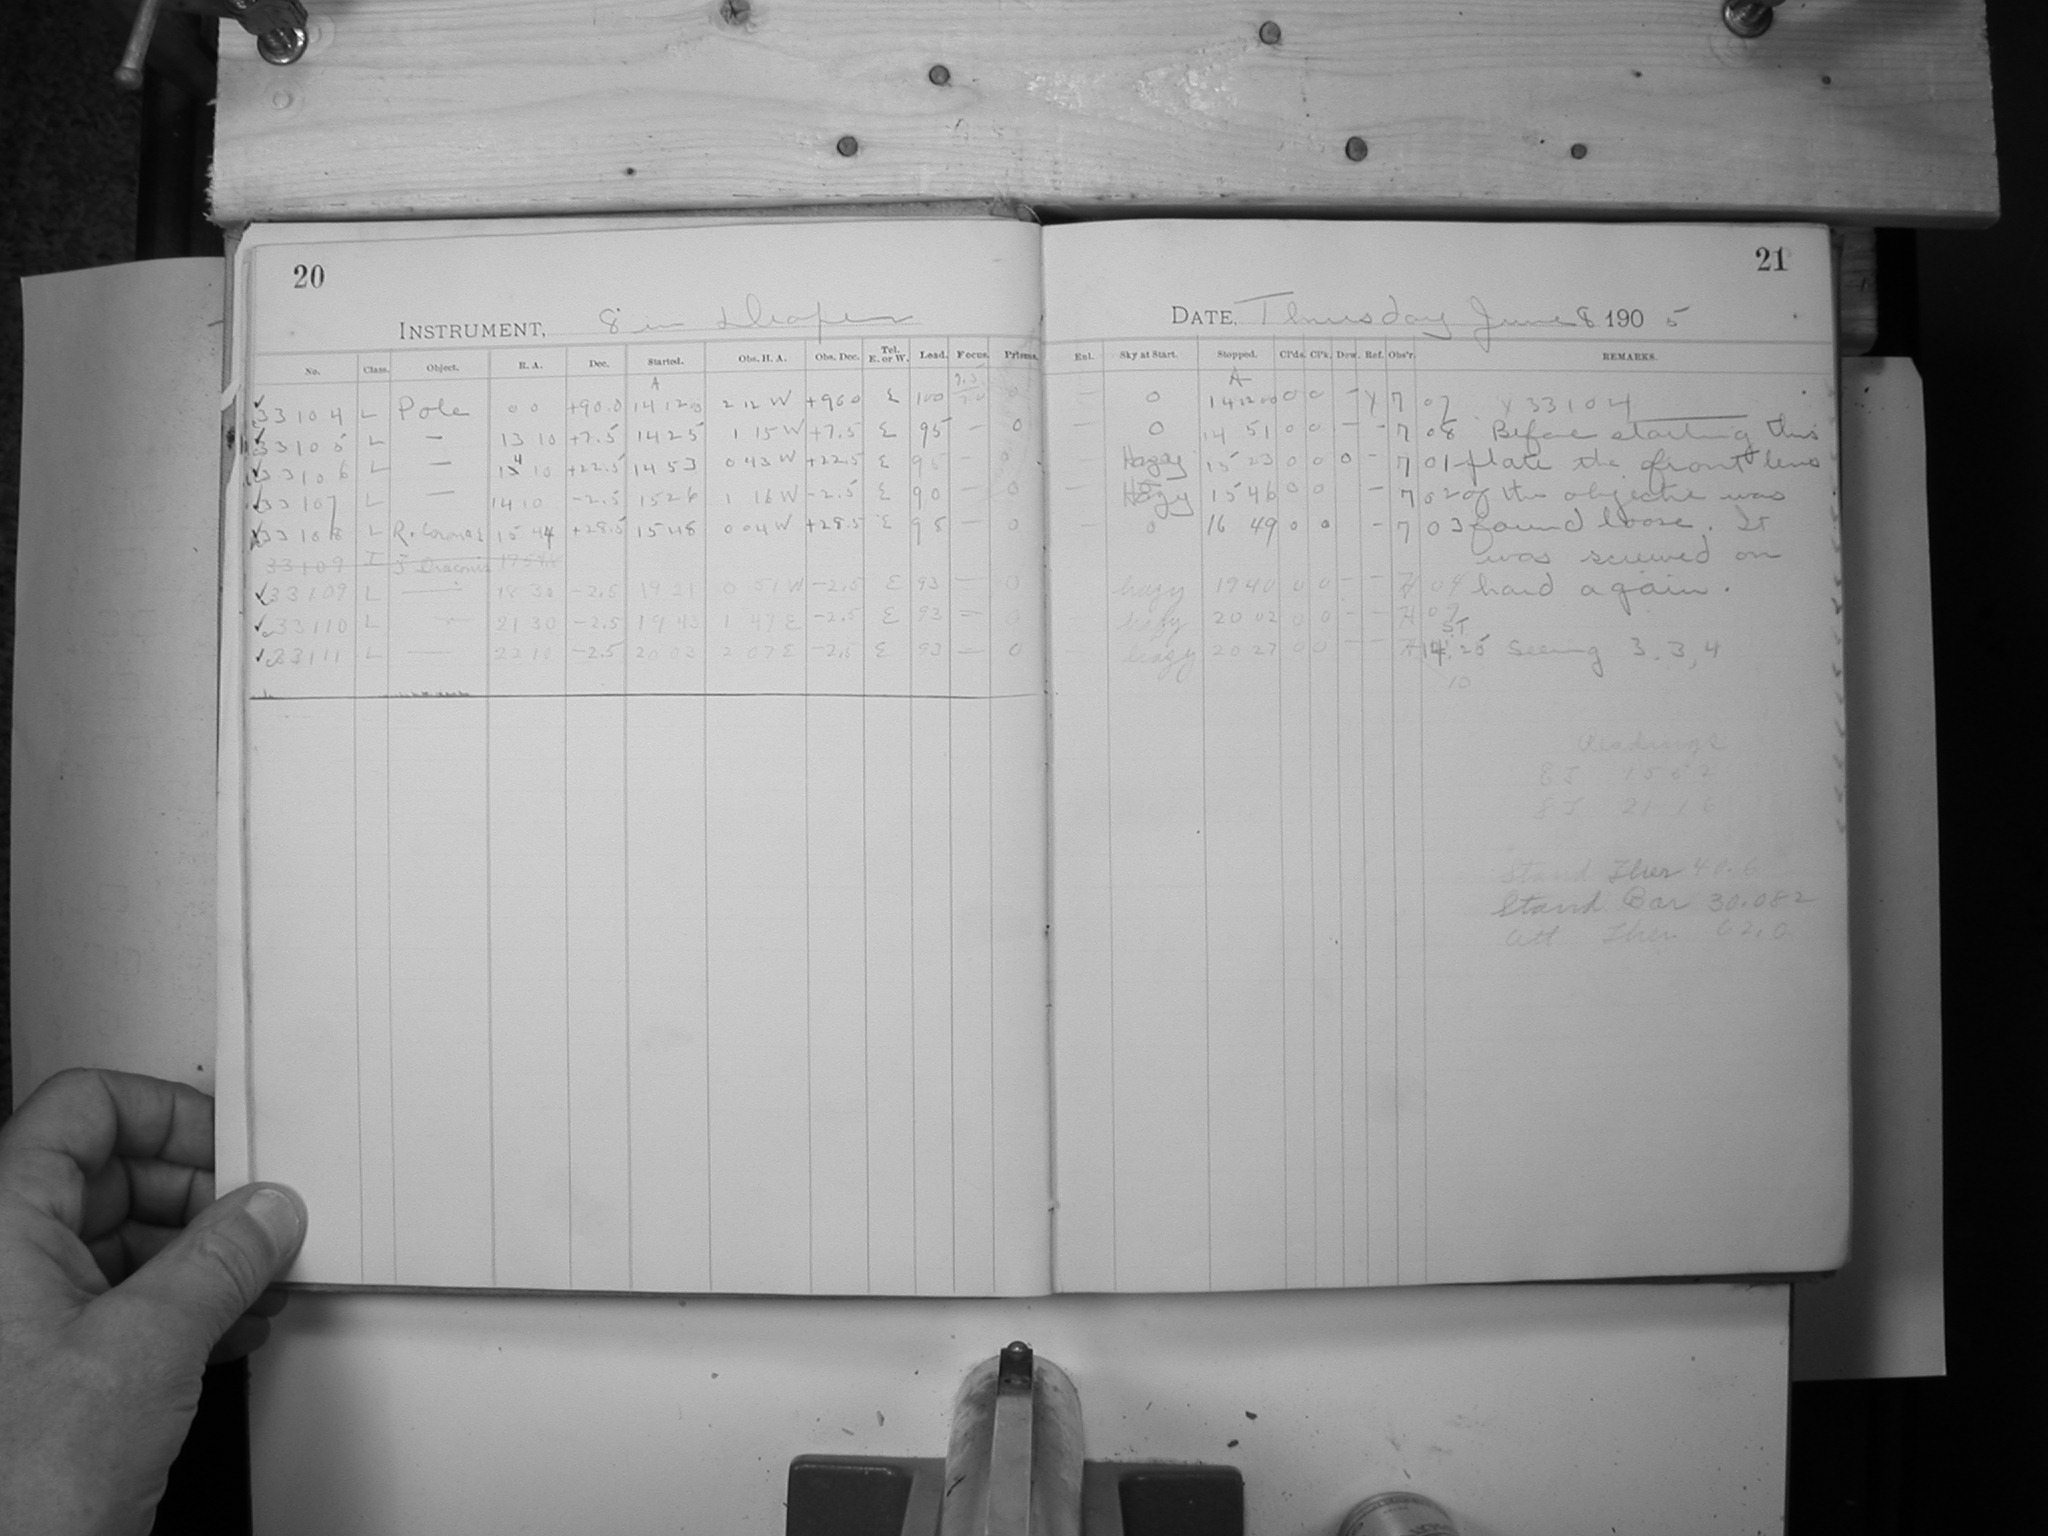 20
INSTRUMENT, 8 in Draper
No. Class. Object. R. A. Dec. Started. Obs. H. A. Obs. Dec. Tel. E. or W. Load. Focus. Prisms.
A
33104 L Pole 0 0 +90.0 14 12 00 2 12 W +90 0 E 100 0
33105 L — 13 10 +7.5 14 25 1 15 W +7.5 E 95 — 0
33106 L — 14 10 +22.5 14 53 0 43 W +22.5 E 95 — 0
33107 L — 14 10 -2.5 15 26 1 16 W -2.5 E 90 — 0
33108 L R. Coronae 15 44 +28.5 15 48 0 04 W +28.5 E 98 — 0
33109 I Draconis
33109 L — 18 30 -2.5 19 21 0 51 W -2.5 E 93 — 0
33110 L — 21 30 -2.5 19 43 1 47 E -2.5 E 93 — 0
33111 L — 22 10 -2.5 20 03 2 07 E -2.5 E 93 — 0
21
DATE, Thursday June 8 1905
Enl. Sky at Start. Stopped. Cl'ds. Cl'k. Dew. Ref. Obs'r. REMARKS.
A
— 0 14 0 0 — Y 7 07 Y 33104
— 0 14 51 0 0 — - 7 08 Before starting this
— Hazy 15 23 0 0 0 - 7 01 plate the front lens
— Hazy 15 46 0 0 - 7 02 of the objective was
— 0 16 49 0 0 - 7 03 found loose. It
was screwed on
hazy 19 40 0 0 - - H 04 hard again.
hazy 20 02 0 0 - - H 09
ST
hazy 20 27 0 0 - - H 14.25 Seeing 3.3,4
10
Readings
8 I 15 52
8 I 21 16
Stand Ther
Stand Bar 30.082
Att Ther 62.0